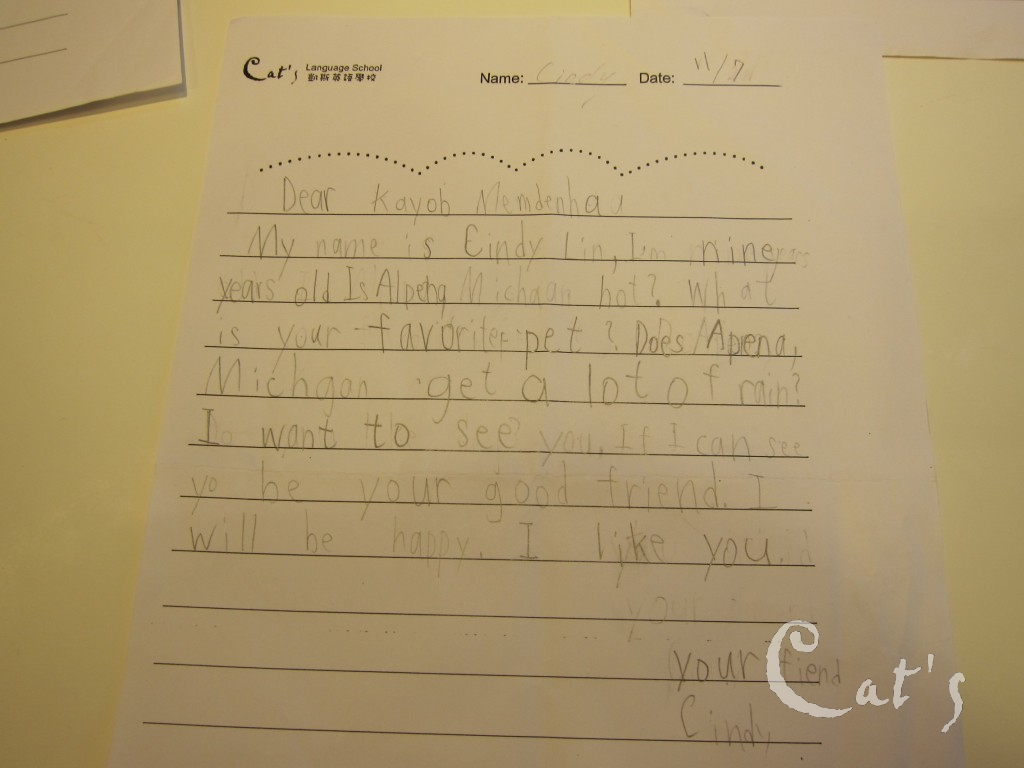 Cat's Language School
凱斯英語學校
Name: Cindy Date: 11/7
Dear Kayob Memdenhau
My name is Cindy Lin, I'm nine
years old Is Alpeng Michgan hot? What
is your favoriter pet? Does Apena,
Michgan get a lot of rain?
I want to see you, If I can see
yo be your good friend. I
will be happy. I like you.
your fiend
Cindy
Cat's